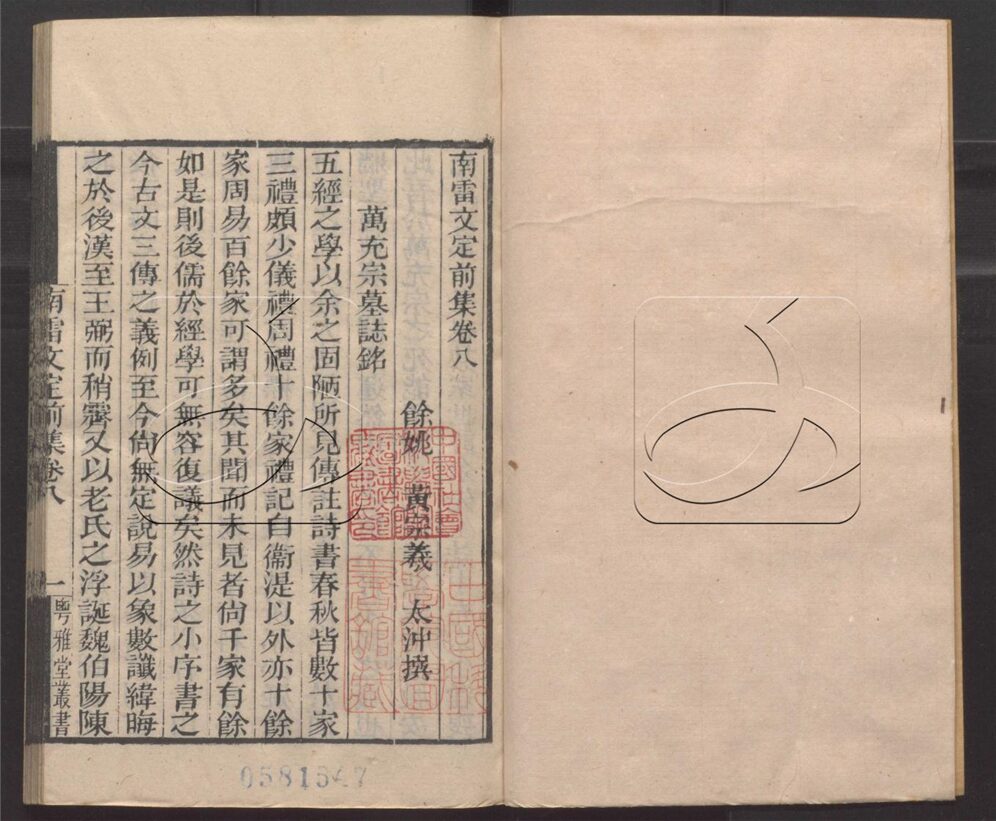 南雷文定前集卷八
餘姚 黃宗羲 太沖撰
萬充宗墓誌銘
五經之學以余之固陋所見傳註詩書春秋皆數十家
三禮頗少儀禮周禮十餘家禮記自衞湜以外亦十餘
家周易百餘家可謂多矣其聞而未見者尙千家有餘
如是則後儒於經學可無容復議矣然詩之小序書之
今古文三傳之義例至今尙無定說易以象數讖緯晦
之於後漢至王弼而稍霽又以老氏之浮誕魏伯陽陳
南雷文定前集卷八
一
粵雅堂叢書
0581547